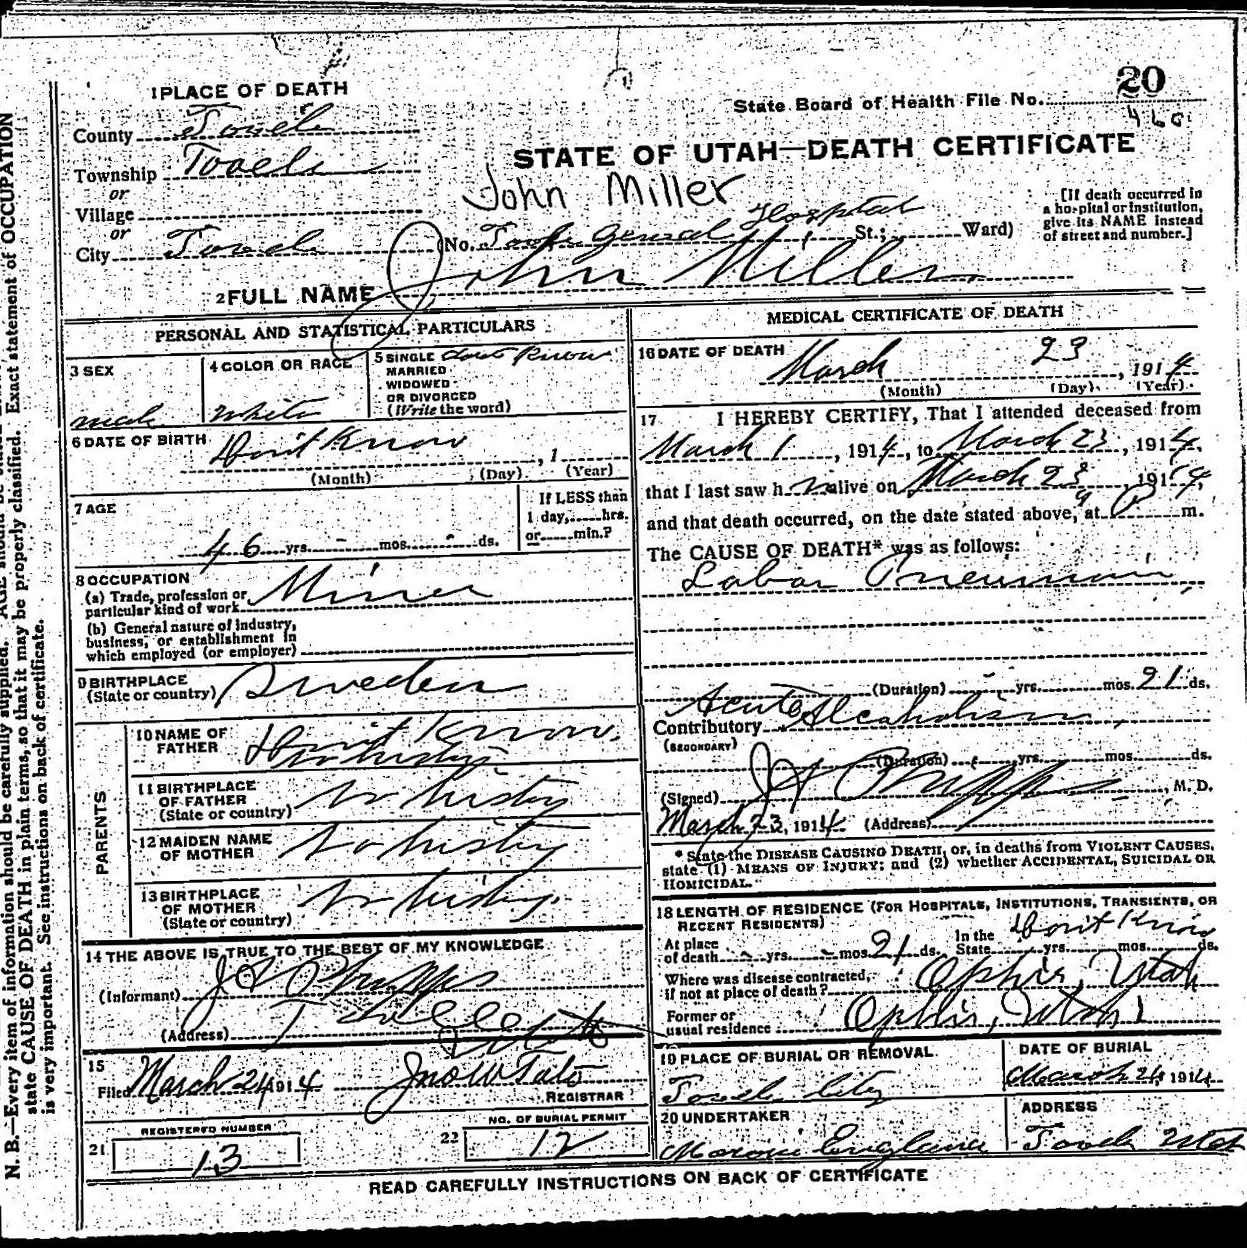 20
State Board of Health File No.
460
1 PLACE OF DEATH
County Tooele
Township Tooele
or
Village
or
City Tooele
STATE OF UTAH—DEATH CERTIFICATE
John Miller
(No. Tooele General Hospital St.; Ward)
[If death occurred in
a hospital or institution,
give its NAME instead
of street and number.]
2 FULL NAME John Miller
PERSONAL AND STATISTICAL PARTICULARS
3 SEX
male
4 COLOR OR RACE
white
5 SINGLE dont know
MARRIED
WIDOWED
OR DIVORCED
(Write the word)
6 DATE OF BIRTH Dont Know , 1
(Month) (Day) (Year)
7 AGE
46 yrs. - mos. - ds.
If LESS than
1 day, hrs.
or min.?
8 OCCUPATION
(a) Trade, profession or
particular kind of work Miner
(b) General nature of industry,
business, or establishment in
which employed (or employer)
9 BIRTHPLACE
(State or country) Sweden
PARENTS
10 NAME OF
FATHER Dont Know.
No history
11 BIRTHPLACE
OF FATHER
(State or country) No history
12 MAIDEN NAME
OF MOTHER No history
13 BIRTHPLACE
OF MOTHER
(State or country) No history.
14 THE ABOVE IS TRUE TO THE BEST OF MY KNOWLEDGE
(Informant) J A Phipps
(Address) Tooele
Utah
15
Filed March 24 1914 Jno W Tate
REGISTRAR
REGISTERED NUMBER
21 13
NO. OF BURIAL PERMIT
22 12
MEDICAL CERTIFICATE OF DEATH
16 DATE OF DEATH
March 23 , 1914
(Month) (Day) (Year)
17 I HEREBY CERTIFY, That I attended deceased from
March 1 , 1914, to March 23, 1914,
that I last saw h m alive on March 23 , 1914,
and that death occurred, on the date stated above, at 9 P m.
The CAUSE OF DEATH* was as follows:
Lobar Pneumonia
(Duration) yrs. mos. 21 ds.
Contributory Acute Alcoholism,
(SECONDARY)
(Duration) yrs. mos. ds.
(Signed) J A Phipps , M. D.
March 23, 1914 (Address)
* State the DISEASE CAUSING DEATH, or, in deaths from VIOLENT CAUSES,
state (1) MEANS OF INJURY; and (2) whether ACCIDENTAL, SUICIDAL OR
HOMICIDAL.
18 LENGTH OF RESIDENCE (FOR HOSPITALS, INSTITUTIONS, TRANSIENTS, OR
RECENT RESIDENTS)
At place
of death - yrs. - mos 21 ds.
In the
State Dont Know yrs. mos. ds.
Where was disease contracted,
if not at place of death? Ophir, Utah
Former or
usual residence Ophir, Utah
19 PLACE OF BURIAL OR REMOVAL
Tooele City
DATE OF BURIAL
March 24, 1914
20 UNDERTAKER
Moroni England
ADDRESS
Tooele Utah
READ CAREFULLY INSTRUCTIONS ON BACK OF CERTIFICATE
N. B.—Every item of information should be carefully supplied. AGE should be
state CAUSE OF DEATH in plain terms, so that it may be properly classified. Exact statement of OCCUPATION
is very important. See instructions on back of certificate.